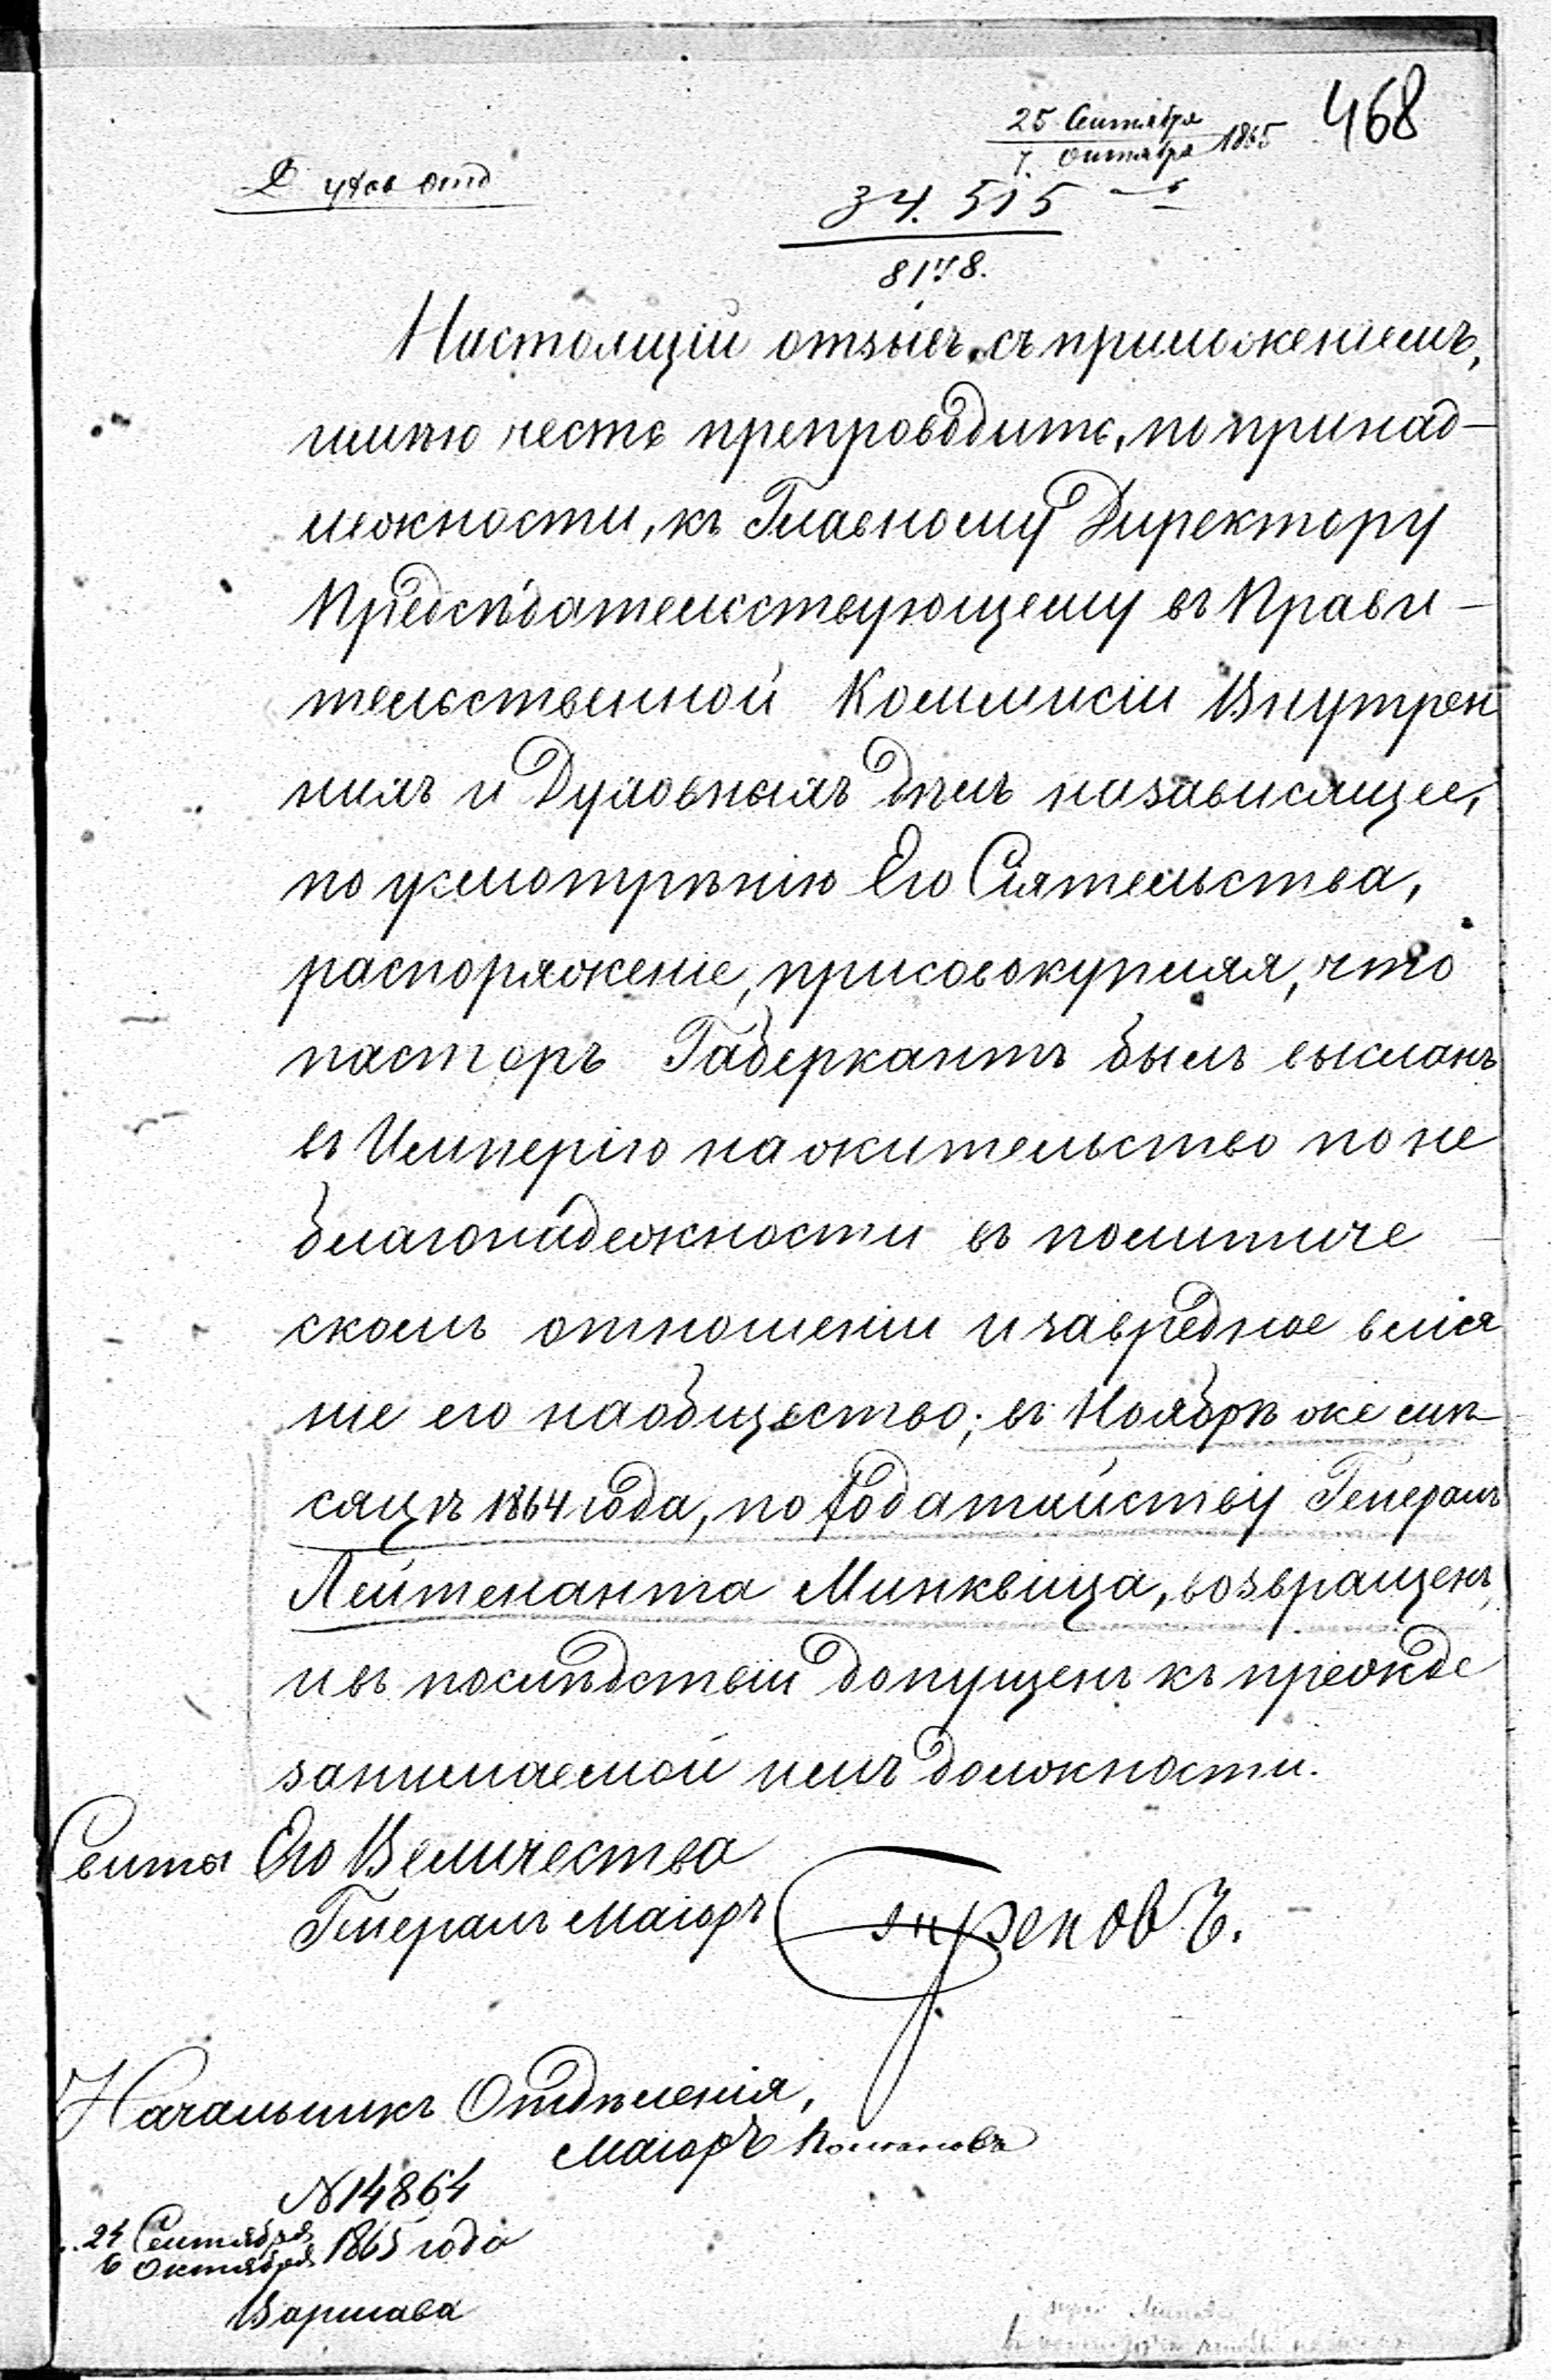 25 Сентября
7. Октября 1865
468
Д Духов Отд
34.515
8178.
Настоящій отзывъ съ приложеніемъ,
имѣю честь препроводить, по принад-
лежности, къ Главному Директору
Предсѣдательствующему въ Прави-
тельственной Коммисіи Внутрен
нихъ и Духовныхъ Дѣлъ назависящее,
по усмотрѣнію Его Сіятельства,
распоряженіе, присовокупляя, что
пасторъ Габеркантъ былъ высланъ
въ Имперію на жительство по не
благонадежности въ политиче
скомъ отношеніи и завредное вліа
ніе его на общество; въ Ноябрѣ же мѣ-
сяцѣ 1864 года, по ходатайству Генералъ
Лейтенанта Минквица, возвращенъ,
и въ послѣдствіи допущенъ къ прежде
занимаемой имъ должности.
Свиты Его Величества
Генералъ Маіоръ Треповъ.
Начальникъ Отдѣленія,
Маіоръ
N 14864
24 Сентября
6 Октября 1865 года
Варшава